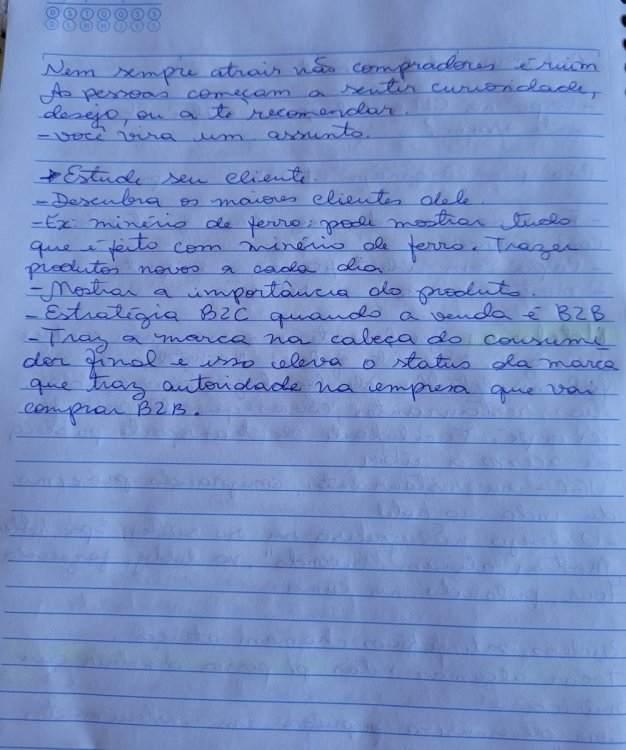 D S T Q Q S S
D L M M J V S
Nem sempre atrair não compradores é ruim
As pessoas começam a sentir curiosidade,
desejo, ou a te recomendar.
- você vira um assunto.
→ Estude seu cliente.
- Descubra os maiores clientes dele.
- Ex: minério de ferro: pode mostrar tudo
que é feito com minério de ferro. Trazer
produtos novos a cada dia.
- Mostrar a importância do produto.
- Estratégia B2C quando a venda é B2B
- Traz a marca na cabeça do consumi
dor final e isso eleva o status da marca
que traz autoridade na empresa que vai
comprar B2B.